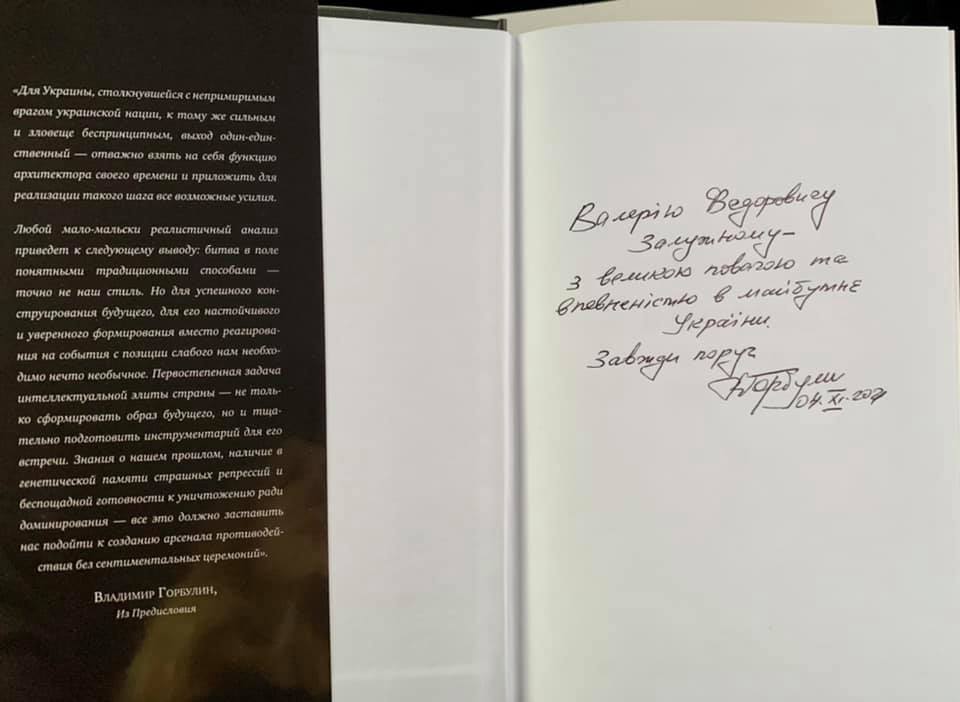 «Для Украины, столкнувшейся с непримиримым
врагом украинской нации, к тому же сильным
и зловеще беспринципным, выход один-един-
ственный — отважно взять на себя функцию
архитектора своего времени и приложить для
реализации такого шага все возможные усилия.
Любой мало-мальски реалистичный анализ
приведет к следующему выводу: битва в поле
понятными традиционными способами —
точно не наш стиль. Но для успешного кон-
струирования будущего, для его настойчивого
и уверенного формирования вместо реагирова-
ния на события с позиции слабого нам необхо-
димо нечто необычное. Первостепенная задача
интеллектуальной элиты страны — не толь-
ко сформировать образ будущего, но и тща-
тельно подготовить инструментарий для его
встречи. Знания о нашем прошлом, наличие в
генетической памяти страшных репрессий и
беспощадной готовности к уничтожению ради
доминирования — все это должно заставить
нас подойти к созданию арсенала противодей-
ствия без сентиментальных церемоний».
Владимир Горбулин,
Из Предисловия
Валерію Федоровичу
Залужному —
з великою повагою та
впевненістю в майбутнє
України.
Завжди поруч
04.XI.2021